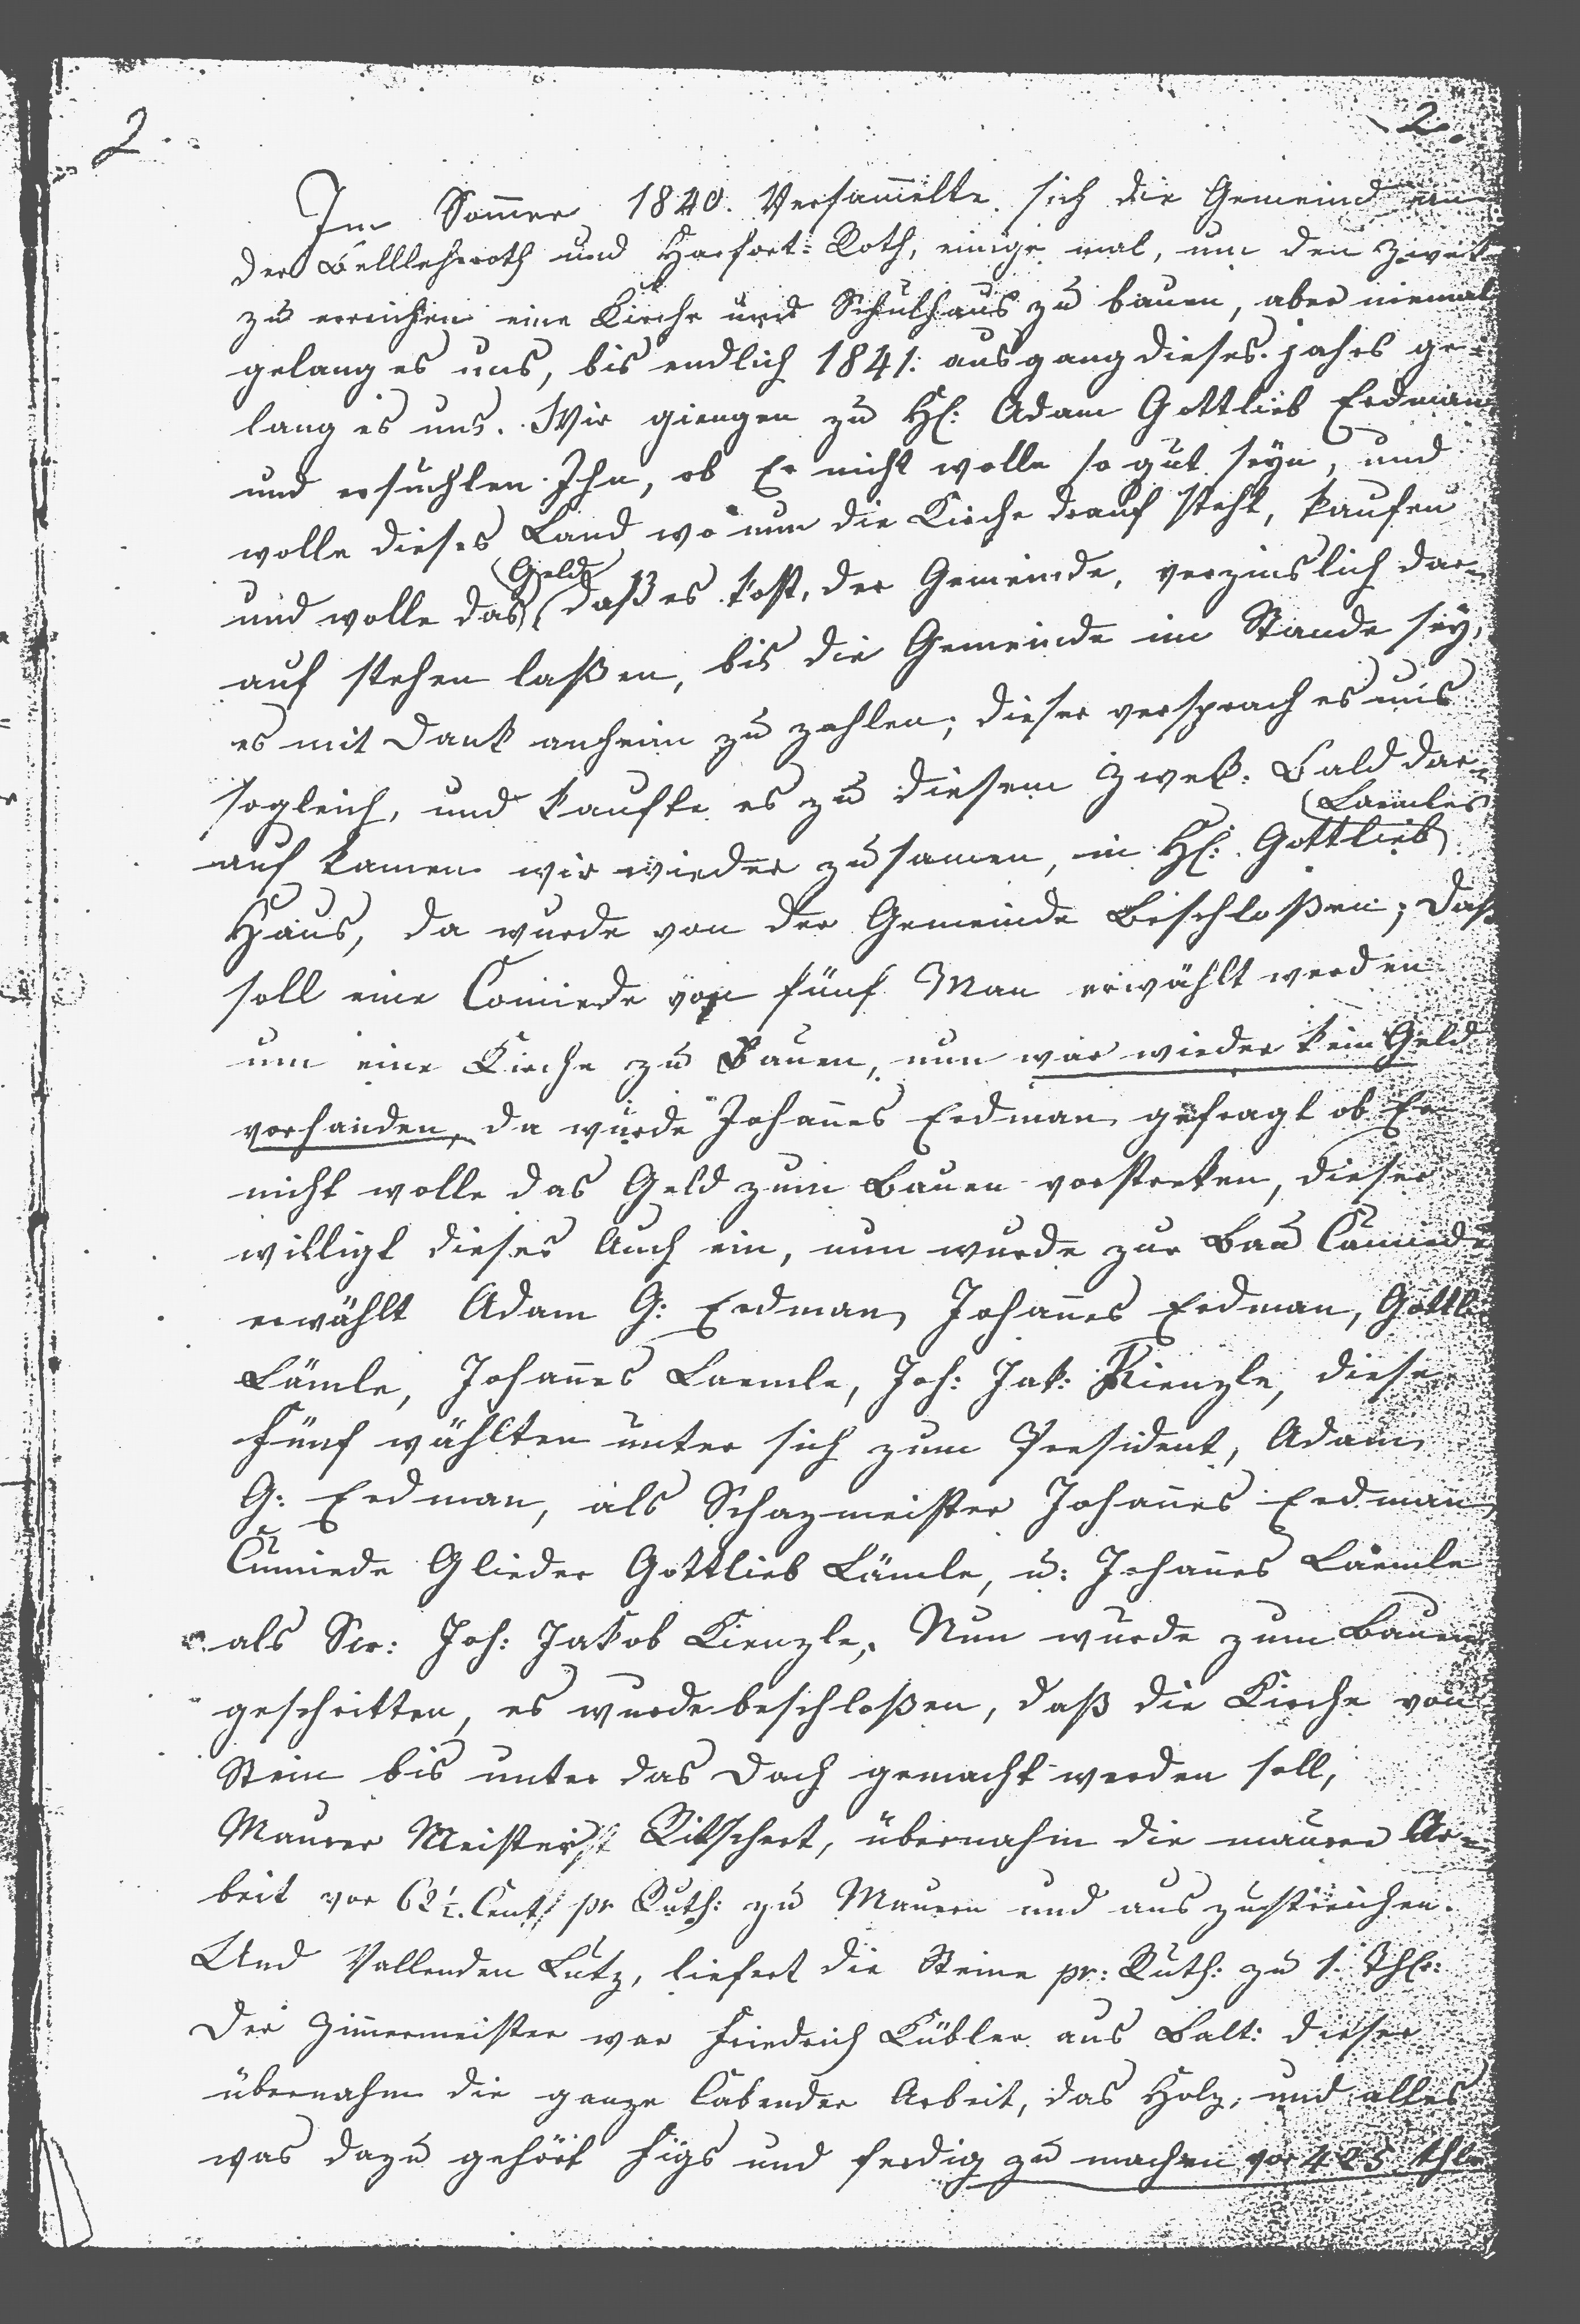 2.
2.
Im Somer 1840. Versammelte sich die Gemeind an
der Belllehrroth und Harfort-Roth, einige mal, um den Zwek
zu erreichen eine Kirche und Schulhaus zu bauen, aber niemal
gelang es uns, bis endlich 1841: ausgang dieses jahrs ge-
lang es uns. Wir giengen zu H: Adam Gottlieb Erdman,
und ersuchten Ihn, ob Er nicht wolle so gut seyn, und
wolle dieses Land wo nun die Kirche drauf steht, kaufen
Geld
und wolle das daß es kost, der Gemeinde, verzinslich dar-
auf stehen laßen, bis die Gemeinde im Stande sey,
es mit Dank anheim zu zahlen; dieser versprach es uns
sogleich, und kaufte es zu diesem Zwek: Bald dar-
Laemles
auf kamen wir wieder zusamen, in H: Gottlieb
Haus, da wurde von der Gemeinde Beschloßen; daß
soll eine Comiede von fünf Man erwählt werden
um eine Kirche zu Bauen, nun war wieder kein Geld
vorhanden, da wurde Johanes Erdman gefragt ob Er
nicht wolle das Geld zum Bauen vorstreken, dieser
willigt dieses Auch ein, nun wurde zur Bau Comiede
erwählt Adam G: Erdman, Johanes Erdman, Gottli
Lämle, Johanes Laemle, Joh: Jak: Kienzle, diese
Fünf wählten unter sich zum President, Adam
G: Erdman, als Schazmeister Johanes Erdman,
Cumiede Glieder Gottlieb Lämle, u: Johanes Laemle
als Scr: Joh: Jakob Kienzle. Nun wurde zum Bauen
geschritten, es wurde beschloßen, daß die Kirche von
Stein bis unter das Dach gemacht werden soll,
Maurer Meister Ritschert, übernahm die maurer Ar-
beit vor 62 1/2. Cent pr Ruth: zu Mauern und aus zustreichen.
Und Vallenden Lutz, liefert die Steine pr: Ruth: zu 1. Thlr:
Der Zimermeister war Friedrich Kübler aus Balt: dieser
übernahm die ganze Cabender Arbeit, das Holz, und alles
was dazu gehört Figs und ferdig zu machen vor 425 thlr